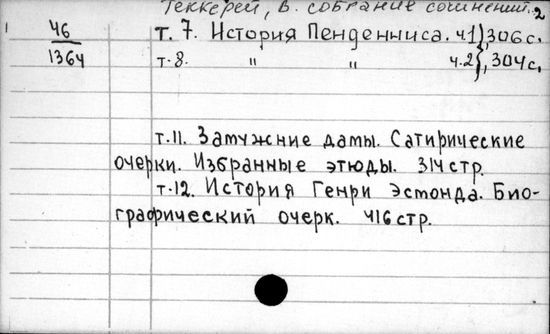 Теккерей, В. собрание сочинений. 2
46 т. 7. История Пенденниса. ч.1), 306 с.
1364 т. 8. " " ч.2}, 304 с.
т.11. Замужние дамы. Сатирические
очерки. Избранные этюды. 314 стр.
т.12. История Генри Эстонда. Био-
графический очерк. 416 стр.